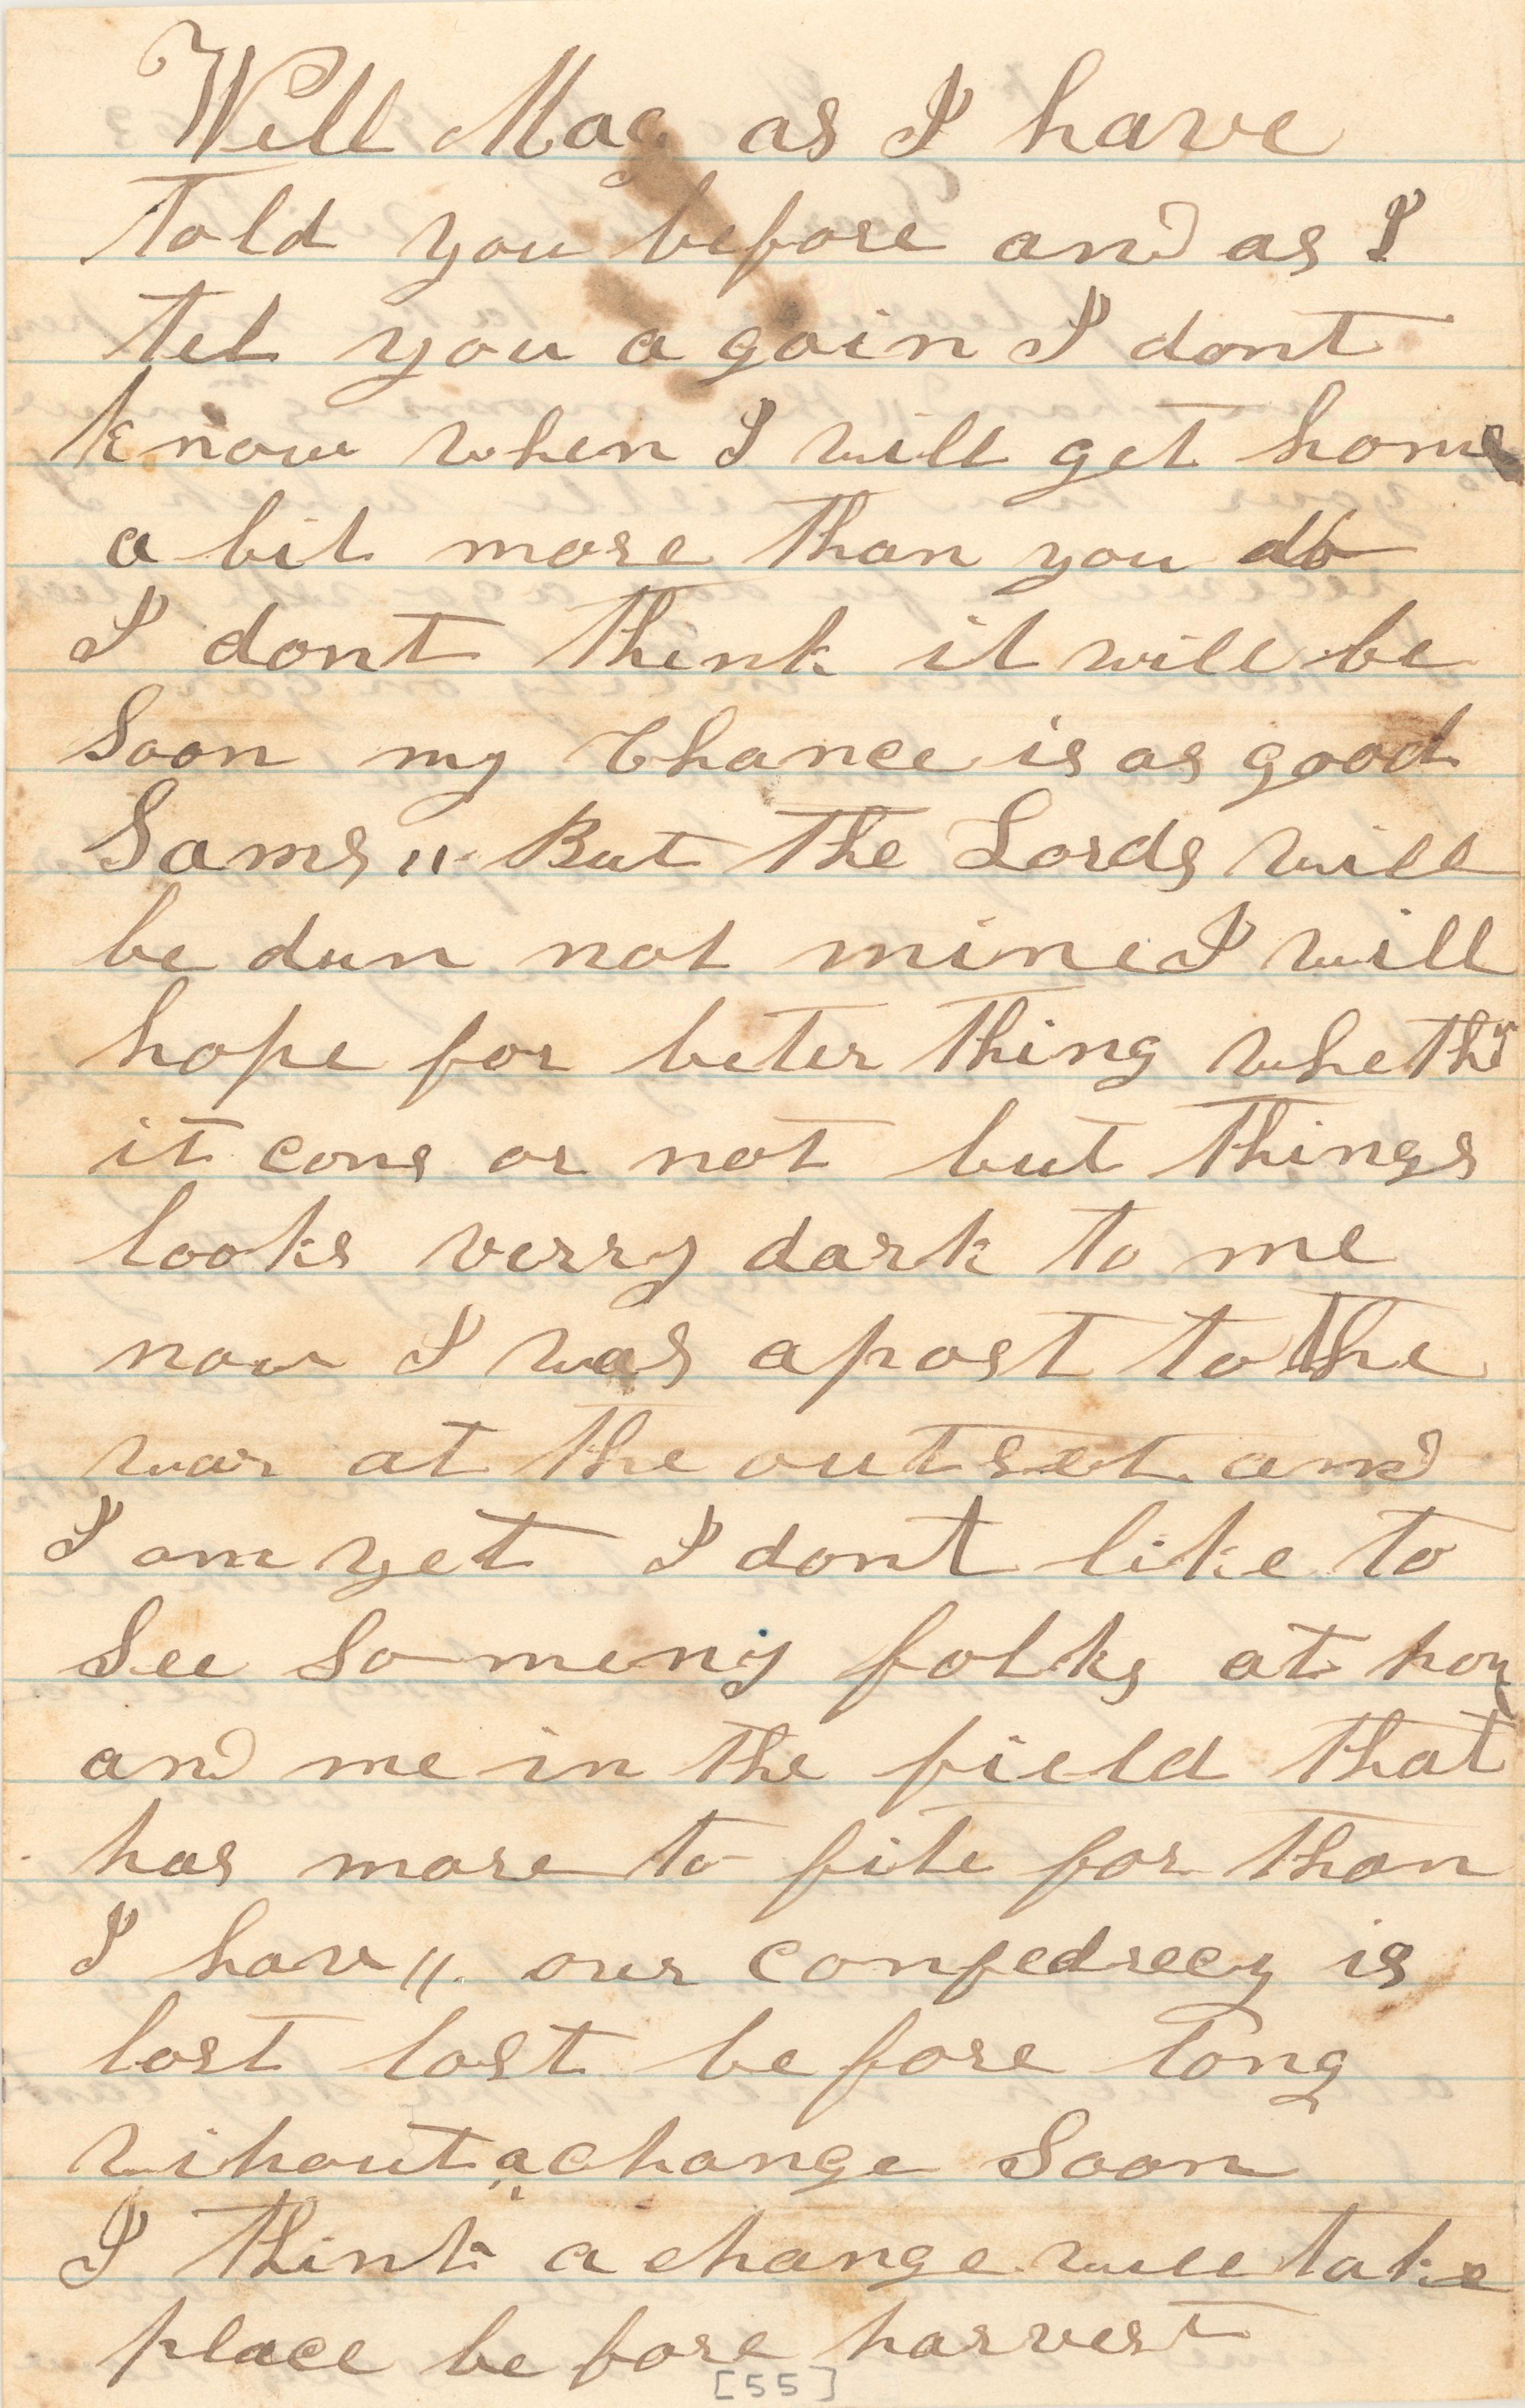 Well Mag as I have
told you before and as I
tel you a goin I dont
know when I will get home
a bit more than you do
I dont think it will be
Soon my Chance is as good
Sams " But the Lords will
be dun not mine I will
hope for beter thing whethr
it coms or not but things
looks verry dark to me
now I was apost to the
war at the outset and
I am yet I dont like to
See So meny folks at hom
and me in the field that
has more to fite for than
I hav " our confedrecy is
lost lost be fore long
wihout a change Soon
I think a change will take
place be fore harvest
[55]